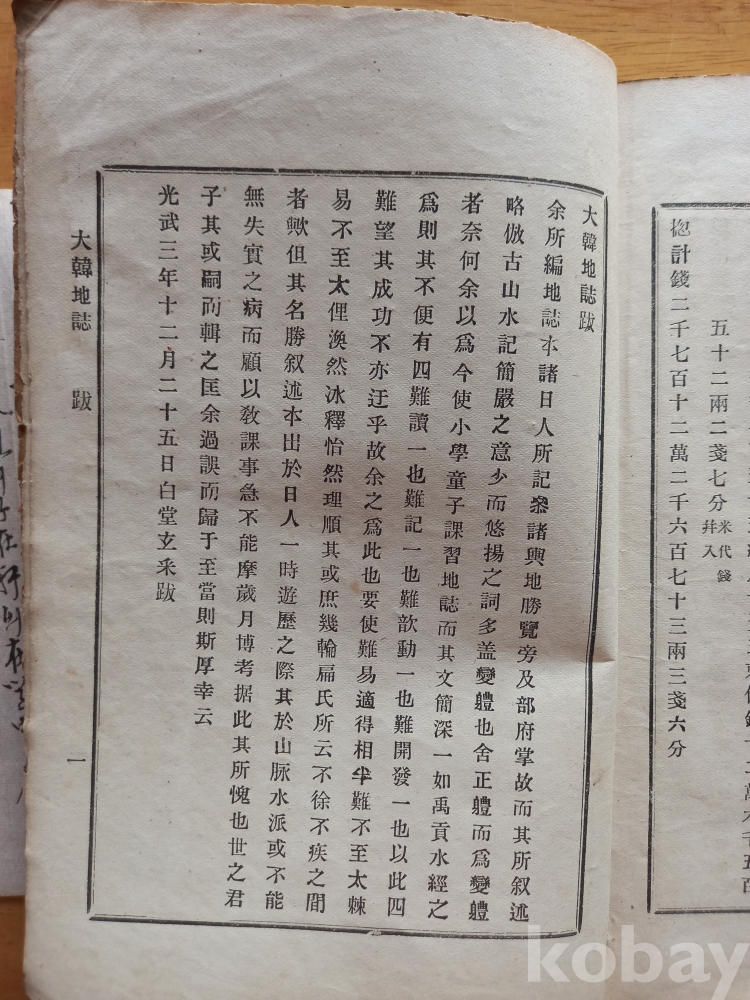 五十二兩二戔七分 米代錢幷入
揔計錢二千七百十二萬二千六百七十三兩三戔六分
大韓地誌跋
余所編地誌本諸日人所記叅諸輿地勝覽旁及部府掌故而其所叙述
略倣古山水記簡嚴之意少而悠揚之詞多盖變軆也舍正軆而爲變軆
者奈何余以爲今使小學童子課習地誌而其文簡深一如禹貢水經之
爲則其不便有四難讀一也難記一也難歆動一也難開發一也以此四
難望其成功不亦迂乎故余之爲此也要使難易適得相半難不至太棘
易不至太俚渙然冰釋怡然理順其或庶幾輪扁氏所云不徐不疾之間
者歟但其名勝叙述本出於日人一時遊歷之際其於山脉水派或不能
無失實之病而顧以敎課事急不能摩歲月博考据此其所愧也世之君
子其或嗣而輯之匡余過誤而歸于至當則斯厚幸云
光武三年十二月二十五日白堂玄采跋
大韓地誌 跋
一
kobay